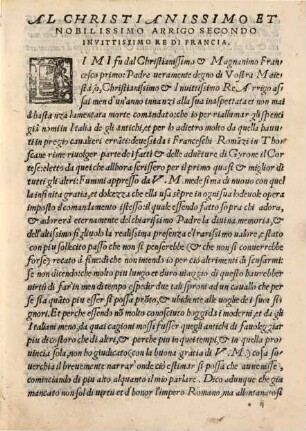 AL CHRISTIANISSIMO ET
NOBILISSIMO ARRIGO SECONDO
INVITTISSIMO RE DI FRANCIA.
MI fu dal Christianissimo & Magnanimo Fran-
cesco primo Padre ueramente degno di Vostra Maie-
stà, Christianissimo & Inuittissimo Re Arrigo as-
sai men d'un'anno innanzi alla sua inaspettata et non mai
à bastanza lamentata morte comandato: che io per riallumar gli spenti
giá nomi in Italia de gli antichi, et per lo adietro molto da quella hauu-
ti in pregio cauallieri erráti: deuessi da i Franceschi Romázi in Tho-
scane rime riuolger parte de i fatti & delle aduenture di Gyrone il Cor-
tese: eletto da quei che allhora scrissero per il primo quasi & miglior di
tutti gli altri: Fummi appresso da V. M. medesima di nuouo con quel
la infinita gratia, et dokezza che ella usa sépre in ogni sua lodeuole opera
imposto il comandamento istesso: il quale essendo fatto sopra ch'io adora,
& adorerà eternamente del chiarissimo Padre la diuina memoria, &
dell'altissimo figliuolo la realissima presenza et il rarissimo ualore, è stato
con piu sollecito passo che non si penserebbe (& che non si conuerrebbe
forse) recato à fine: di che non intendo io con altro altrimenti di scusarmi:
Se non dicendo: che molto piu lungo et duro uiaggio di questo haurebber
uirtù di far in men tempo espedir due tali sproni ad un cauallo che per
se sia quáto piu esser si possa próto, & ubidiente alle uoglie de i suoi si
gnori. Et perche essendo nõ molto conosciuto hoggidì i moderni, et da gli
Italiani meno, da quai cagioni mossi fusser quegli antichi di fauoleggiar
piu di costoro che di altri, & perche piu in quei tempi, & in quella pro
uincia sola, non ho giudicato (con la buona gratia di V. M.) cosa so-
uerchia il breuemente narrar'onde ciò estimar si possa che auenisse,
cominciando di piu alto alquanto il mio parlare. Dico adunque che già
mancato non sol di uirtù et d'honor l'impero Romano, ma allontanatosi
ii